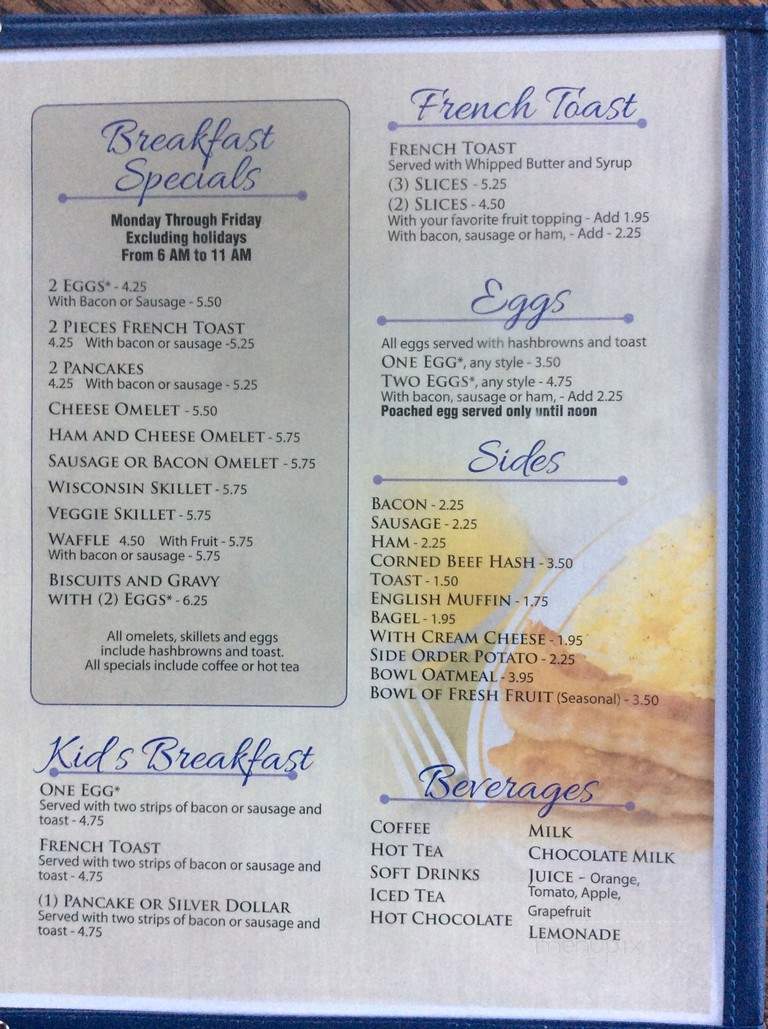 Breakfast
Specials
Monday Through Friday
Excluding holidays
From 6 AM to 11 AM
2 EGGS* - 4.25
With Bacon or Sausage - 5.50
2 PIECES FRENCH TOAST
4.25 With bacon or sausage -5.25
2 PANCAKES
4.25 With bacon or sausage - 5.25
CHEESE OMELET - 5.50
HAM AND CHEESE OMELET - 5.75
SAUSAGE OR BACON OMELET - 5.75
WISCONSIN SKILLET - 5.75
VEGGIE SKILLET - 5.75
WAFFLE 4.50 With Fruit - 5.75
With bacon or sausage - 5.75
BISCUITS AND GRAVY
WITH (2) EGGS* - 6.25
All omelets, skillets and eggs
include hashbrowns and toast.
All specials include coffee or hot tea
Kid's Breakfast
ONE EGG*
Served with two strips of bacon or sausage and
toast - 4.75
FRENCH TOAST
Served with two strips of bacon or sausage and
toast - 4.75
(1) PANCAKE OR SILVER DOLLAR
Served with two strips of bacon or sausage and
toast - 4.75
French Toast
FRENCH TOAST
Served with Whipped Butter and Syrup
(3) SLICES - 5.25
(2) SLICES - 4.50
With your favorite fruit topping - Add 1.95
With bacon, sausage or ham, - Add - 2.25
Eggs
All eggs served with hashbrowns and toast
ONE EGG*, any style - 3.50
TWO EGGS*, any style - 4.75
With bacon, sausage or ham, - Add 2.25
Poached egg served only until noon
Sides
BACON - 2.25
SAUSAGE - 2.25
HAM - 2.25
CORNED BEEF HASH - 3.50
TOAST - 1.50
ENGLISH MUFFIN - 1.75
BAGEL - 1.95
WITH CREAM CHEESE - 1.95
SIDE ORDER POTATO - 2.25
BOWL OATMEAL - 3.95
BOWL OF FRESH FRUIT (Seasonal) - 3.50
Beverages
COFFEE
HOT TEA
SOFT DRINKS
ICED TEA
HOT CHOCOLATE
MILK
CHOCOLATE MILK
JUICE - Orange,
Tomato, Apple,
Grapefruit
LEMONADE